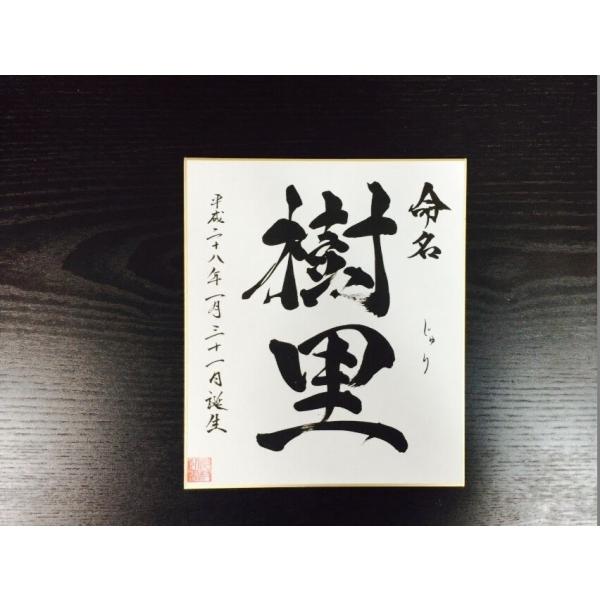 命名
じゅり
樹里
平成二十八年一月三十一日誕生